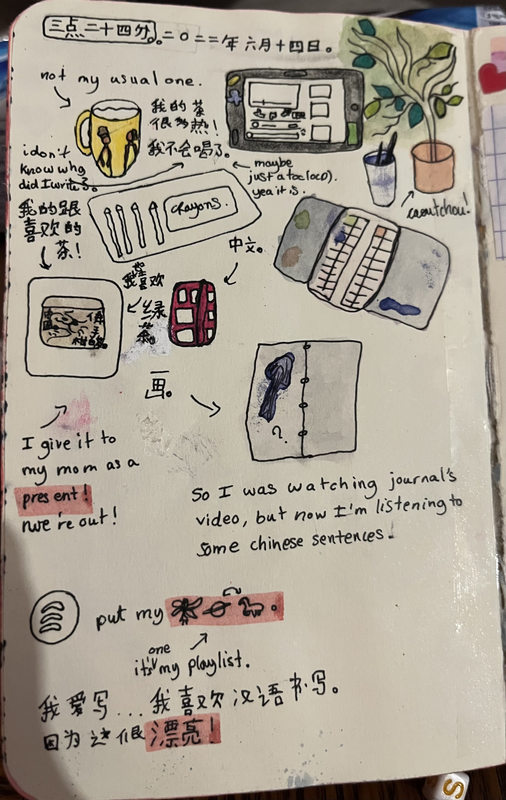 三点二十四分。二〇二二年六月十四日。
not my usual one.
我的茶
很多热!
我不会喝了。
i don't
know why
did I write 多.
maybe
just a toc (ocd).
yea it is.
caoutchou!
crayons.
我的跟
喜欢的
茶!
中文。
我喜欢
绿
茶。
画。
?
I give it to
my mom as a
present!
nwe're out!
So I was watching journal's
video, but now I'm listening to
some chinese sentences.
put my
one
it's my playlist.
我爱写...我喜欢汉语书写。
因为这很漂亮!
S